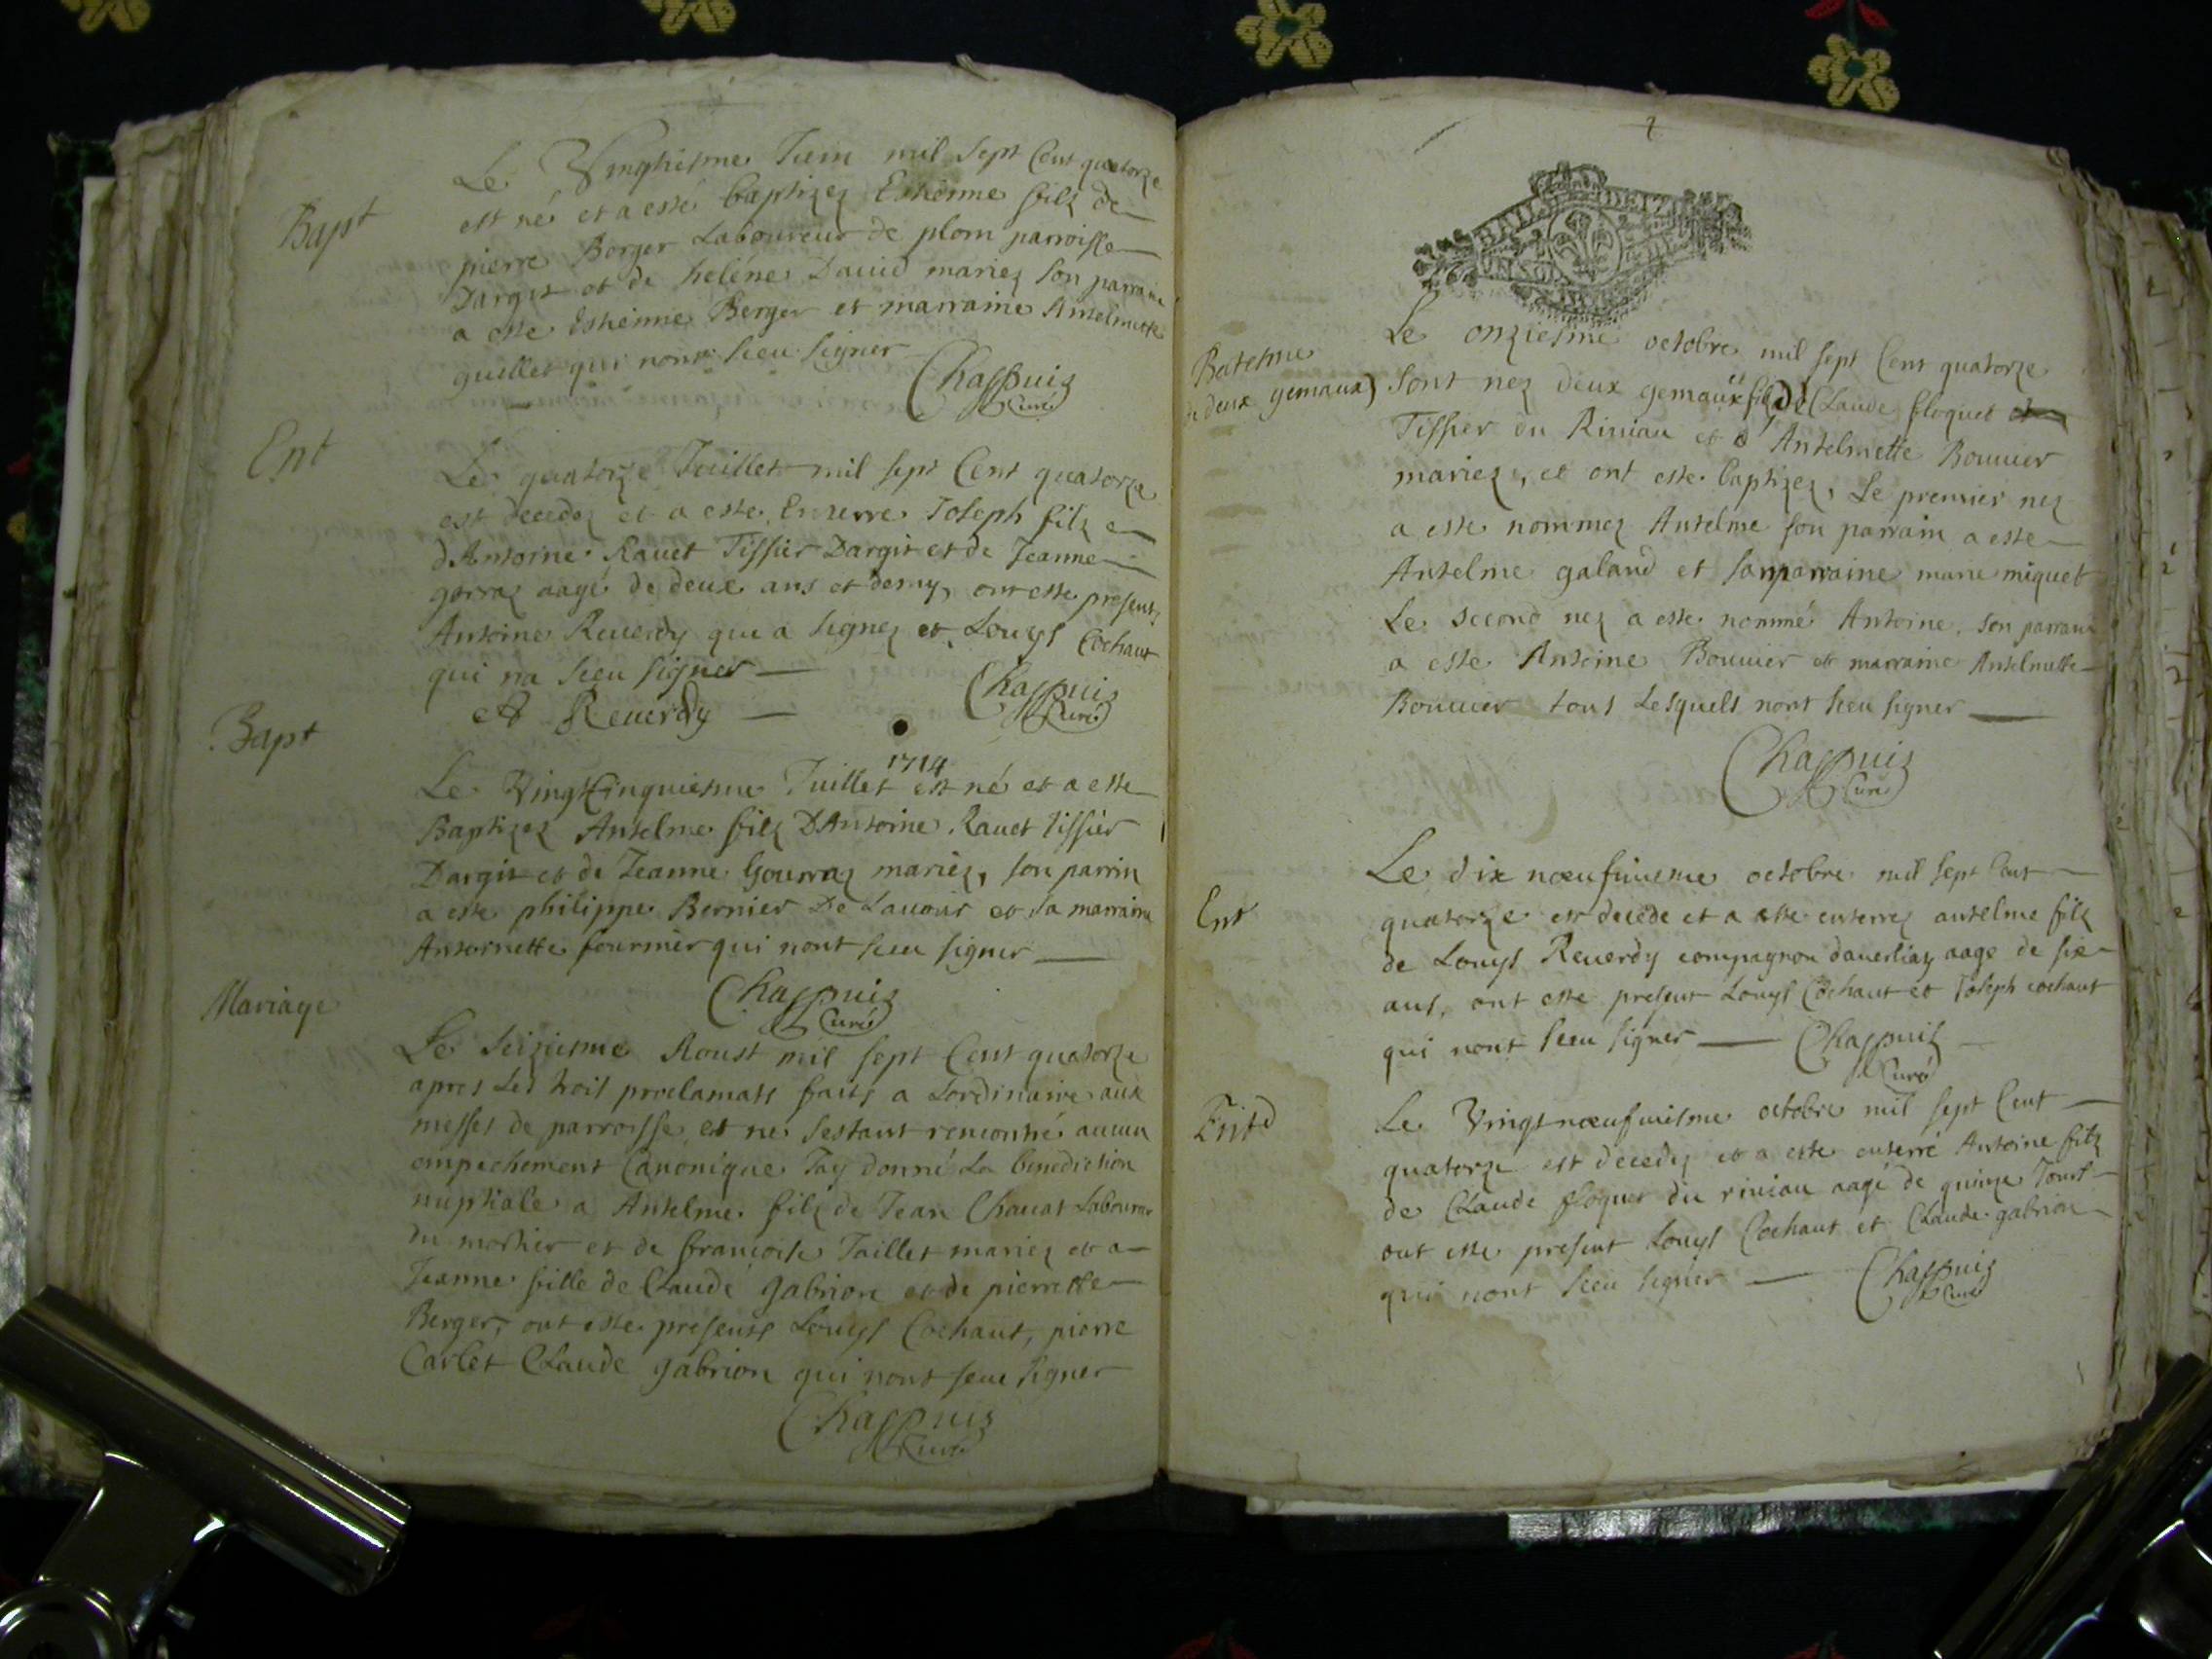 Bapt
Le Vingtiesme Juin mil sept Cent quatorze
est né et a esté baptizez Estienne filz de
pierre Berger Laboureur de plom parroisse
Dargis et de heléne David mariez son parrain
a esté Estienne Berger et marraine Antelmette
quillet qui nont sceu signer
Chappuis
Curé
Ent
Le quatorze Juillet mil sept Cent quatorze
est decedez et a este Enterre Joseph filz
dAntoine Ravet Tissier Dargis et de Jeanne
gorraz aagé de deux ans et demy, ont este presents
Antoine Reverdy qui a signez et Louys Cochaut
qui na sceu signer
A Reverdy
Chappuis
Curé
Bapt
1714
Le Vingtcinquiesme Juillet est né et a esté
Baptizez Antelme filz DAntoine Ravet tissier
Dargis et de Jeanne Gourraz mariez, son parrin
a este philippe Bernier De Lavour et sa marraine
Antoinette fournier qui nont sceu signer
Chappuis
Curé
Mariage
Le seiziesme Aoust mil sept Cent quatorze
apres Les trois proclamats faits a Lordinaire aux
messes de parroisse et ne sestant rencontré aucun
empechement Canonique Jay donné La benediction
nuptiale a Antelme filz de Jean Chavat Laboureur
du mortier et de francoise Taillet mariez et a
Jeanne fille de Claude gabrion et de pierrette
Berger, ont este presents Louys Cochaut, pierre
Carlet Claude gabrion qui nont sceu signer
Chappuis
Curé
BAIL DE
UN SOL
Batesme
de deux gemaux
Le onziesme octobre mil sept Cent quatorze
sont nez deux gemaux filz de Claude floquet
Tissier du Riniau et d'Antelmette Bouvier
mariez, et ont este baptizez, Le premier nez
a este nommez Antelme son parrain a este
Antelme galand et sa marraine marie miquet
Le second nez a este nommé Antoine, son parrain
a este Antoine Bouvier et marraine Antelmette
Bouvier tous Lesquels nont sceu signer
Chappuis
Curé
Ent
Le dix nœufuiesme octobre mil sept Cent
quatorze est decede et a este enterrez antelme filz
de Louys Reverdy compagnon daverliaz aage de six
ans, ont este present Louys Cochaut et Joseph cochaut
qui nont sceu signer
Chappuis
Curé
Le Vingtnœufuiesme octobre mil sept Cent
quatorze est decedez et a este enterré Antoine filz
de Claude floquet du riniau aagé de quinze Jours
ont este present Louys Cochaut et Claude gabrion
qui nont sceu signer
Chappuis
Curé